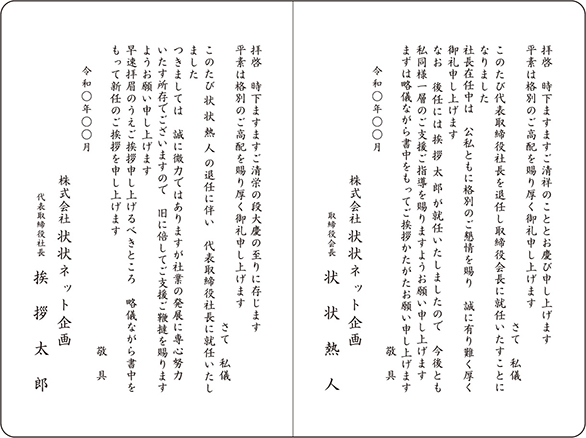 拝啓　時下ますますご清祥のこととお慶び申し上げます
平素は格別のご高配を賜り厚く御礼申し上げます
さて　私儀
このたび代表取締役社長を退任し取締役会長に就任いたすことに
なりました
社長在任中は　公私ともに格別のご懇情を賜り　誠に有り難く厚く
御礼申し上げます
なお　後任には挨拶太郎が就任いたしましたので　今後とも
私同様一層のご支援ご指導を賜りますようお願い申し上げます
まずは略儀ながら書中をもってご挨拶かたがたお願い申し上げます
敬具
令和〇年〇〇月
株式会社 状状ネット企画
取締役会長　状状熱人
拝啓　時下ますますご清栄の段大慶の至りに存じます
平素は格別のご高配を賜り厚く御礼申し上げます
さて　私儀
このたび状状熱人の退任に伴い　代表取締役社長に就任いたし
ました
つきましては　誠に微力ではありますが社業の発展に専心努力
いたす所存でございますので　旧に倍してご支援ご鞭撻を賜ります
ようお願い申し上げます
早速拝眉のうえご挨拶申し上げるべきところ　略儀ながら書中を
もって新任のご挨拶を申し上げます
敬具
令和〇年〇〇月
株式会社 状状ネット企画
代表取締役社長　挨拶太郎